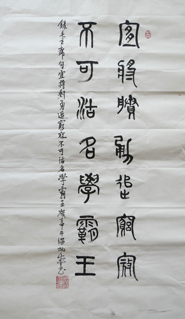 宜将賸勇追窮寇
不可沽名學霸王
錄毛主席句宜將剩勇追窮寇不可沽名學霸王